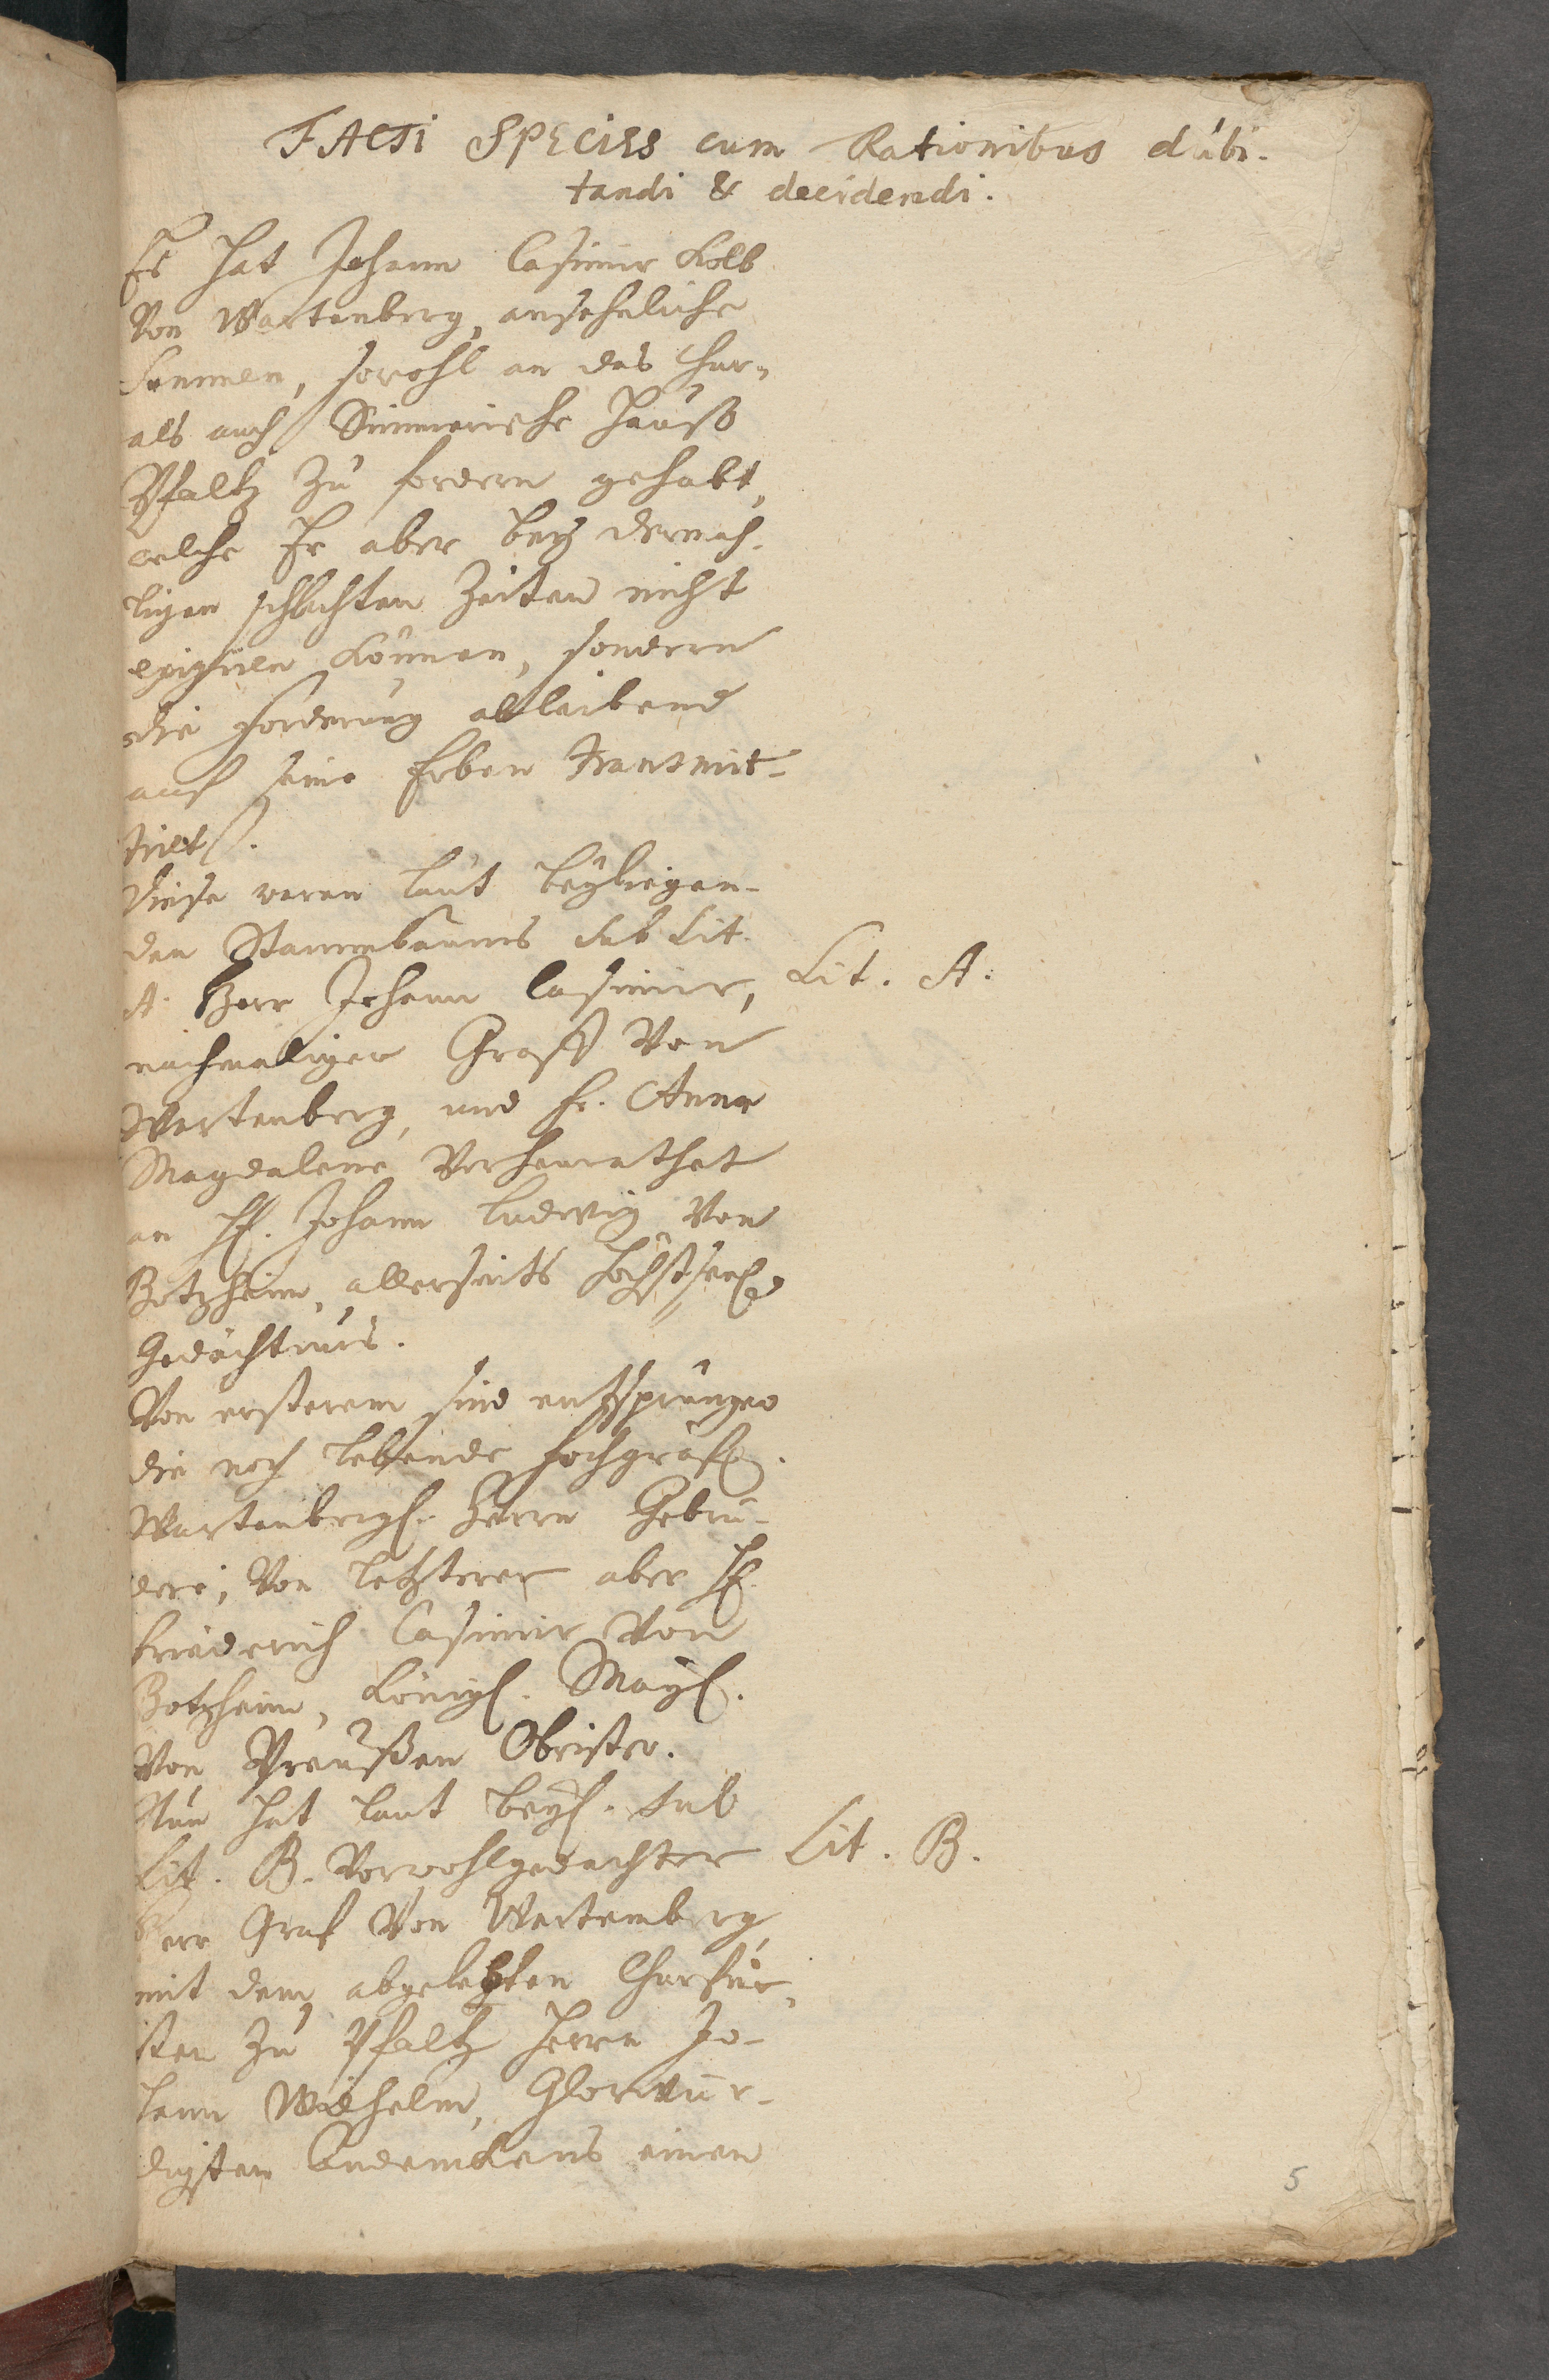 FACTI SPECIES cum Rationibus dubi-
tandi & decidendi.
Es hat Johann Casimir Kolb
Von Wartenberg, ansehnliche
Summen, sowohl an das Chur-
als auch Simmerische Hauß
Pfaltz zu fordern gehabt,
welche Er aber bey dermah-
ligen schlechten Zeiten nicht
exigiren können, sondern
die Forderung ableibend
auf seine Erben transmit-
tirt.
Diese waren laut beyliegen-
den Stammbaums sub Lit.
A. Herr Johann Casimir,
Lit. A.
nachmaliger Graff Von
Wartenberg, und Fr. Anna
Magdalena Verheurathet
an H. Johann Ludwig Von
Botzheim, allerseits höchstseel.
Gedächtnus.
Von ersterem sind entsprungen
die noch lebende hochgräfl.
Wartenbergl. Herrn Gebrü-
dere; Von letzterer aber H.
Friederich Casimir Von
Botzheim, Königl. May.
Von Preußen Obrister.
Nun hat laut beyl. sub
Lit. B. Vorwohlgedachter
Lit. B.
Herr Graf Von Wartemberg
mit dem abgelebten Churfür-
sten zu Pfaltz Herrn Jo-
hann Wilhelm, Glorwür-
digsten Andenckens einen
5